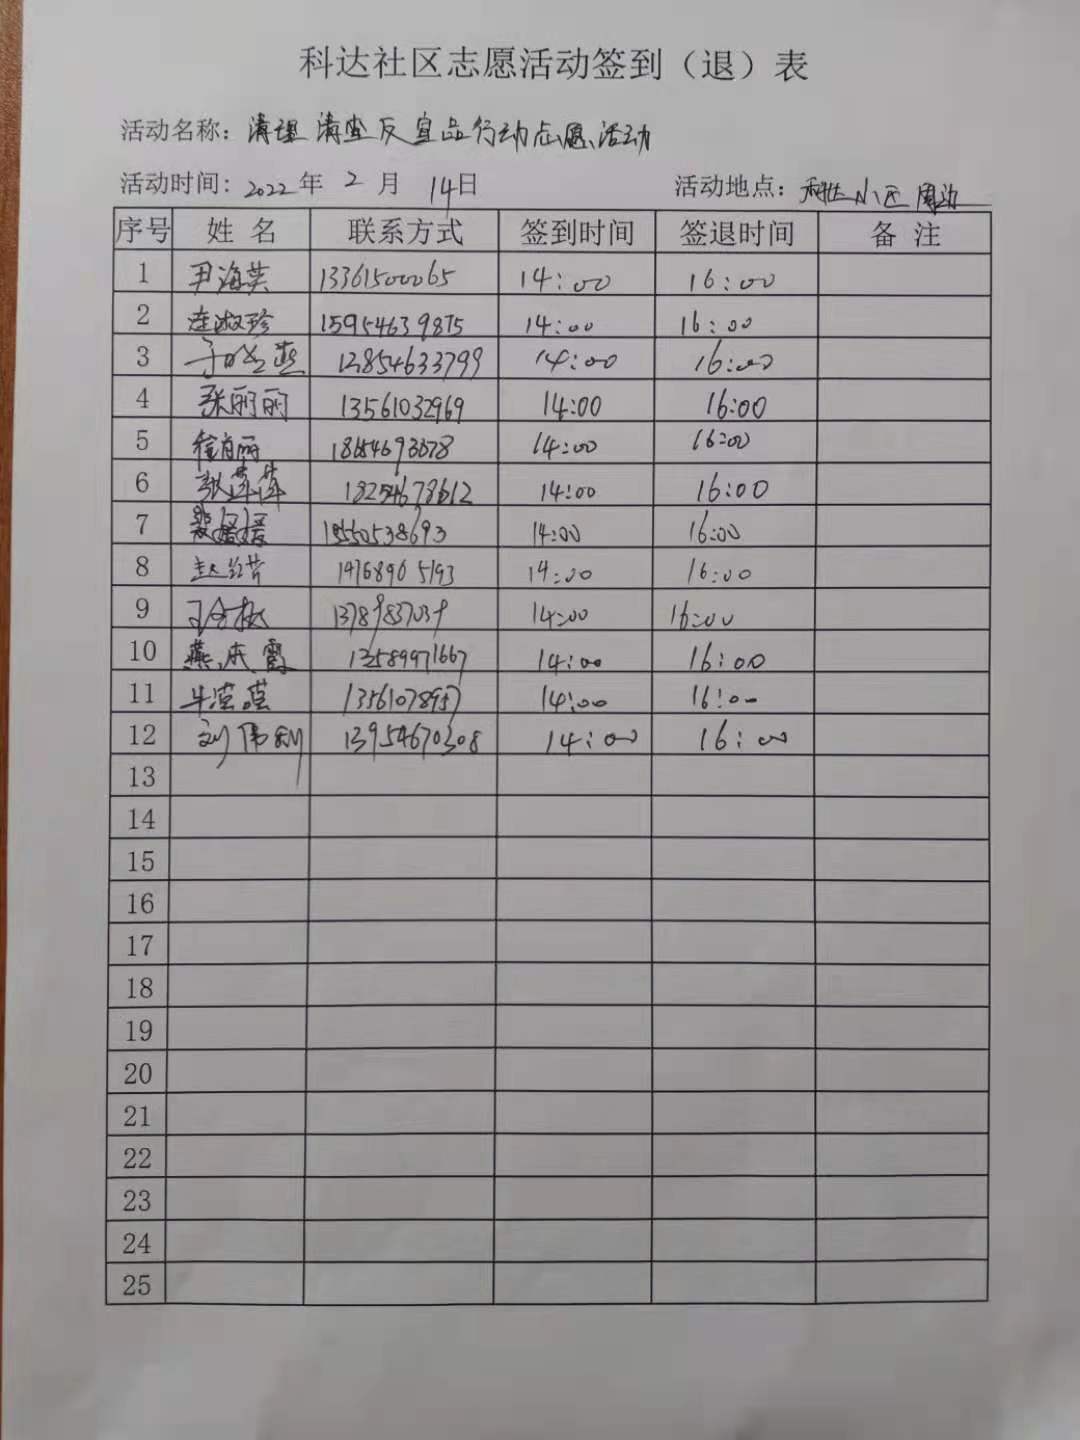 科达社区志愿活动签到（退）表
活动名称：清理清查反宣品行动志愿活动
活动时间：2022年 2 月 14日 活动地点：科达小区周边
序号 姓 名 联系方式 签到时间 签退时间 备 注
1 尹海英 13361500065 14:00 16:00
2 连淑珍 15954639875 14:00 16:00
3 14:00 16:00
4 张丽丽 13561032969 14:00 16:00
5 14:00 16:00
6 张萍萍 18254678612 14:00 16:00
7 14:00 16:00
8 14:00 16:00
9 14:00 16:00
10 13589971667 14:00 16:00
11 14:00 16:00
12 13954670308 14:00 16:00
13
14
15
16
17
18
19
20
21
22
23
24
25